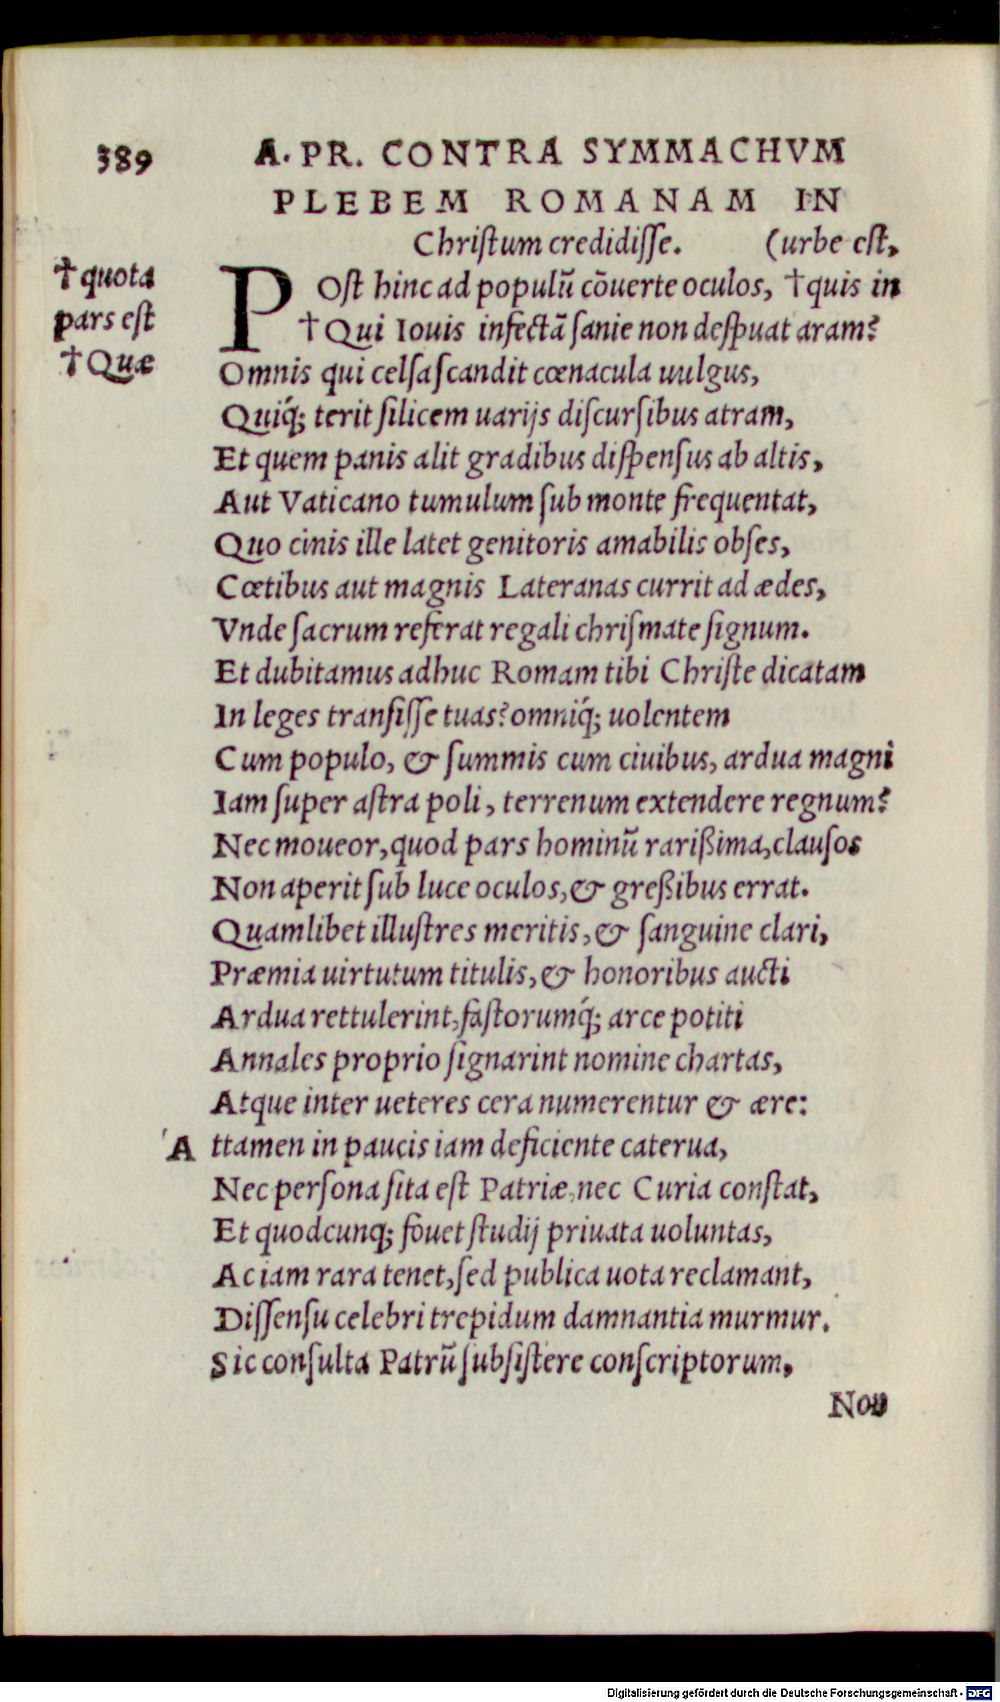 389 A. PR. CONTRA SYMMACHVM
PLEBEM ROMANAM IN
Chriſtum credidiſſe. (urbe eſt,
†quota
pars eſt
†Quæ
POſt hinc ad populū cōuerte oculos, †quis in
†Qui Iouis infectā ſanie non deſpuat aram?
Omnis qui celſa ſcandit cœnacula uulgus,
Quiq́; terit ſilicem uarijs diſcurſibus atram,
Et quem panis alit gradibus diſpenſus ab altis,
Aut Vaticano tumulum ſub monte frequentat,
Quo cinis ille latet genitoris amabilis obſes,
Cœtibus aut magnis Lateranas currit ad ædes,
Vnde ſacrum referat regali chriſmate ſignum.
Et dubitamus adhuc Romam tibi Chriſte dicatam
In leges tranſiſſe tuas? omniq́; uolentem
Cum populo, & ſummis cum ciuibus, ardua magni
Iam ſuper aſtra poli, terrenum extendere regnum?
Nec moueor, quod pars hominū rarißima, clauſos
Non aperit ſub luce oculos, & greßibus errat.
Quamlibet illuſtres meritis, & ſanguine clari,
Præmia uirtutum titulis, & honoribus aucti
Ardua rettulerint, faſtorumq́; arce potiti
Annales proprio ſignarint nomine chartas,
Atque inter ueteres cera numerentur & ære:
Attamen in paucis iam deficiente caterua,
Nec perſona ſita eſt Patriæ, nec Curia conſtat,
Et quodcunq; fouet ſtudij priuata uoluntas,
Ac iam rara tenet, ſed publica uota reclamant,
Diſſenſu celebri trepidum damnantia murmur.
Sic conſulta Patrū ſubſiſtere conſcriptorum,
Non
Digitalisierung gefördert durch die Deutsche Forschungsgemeinschaft - DFG